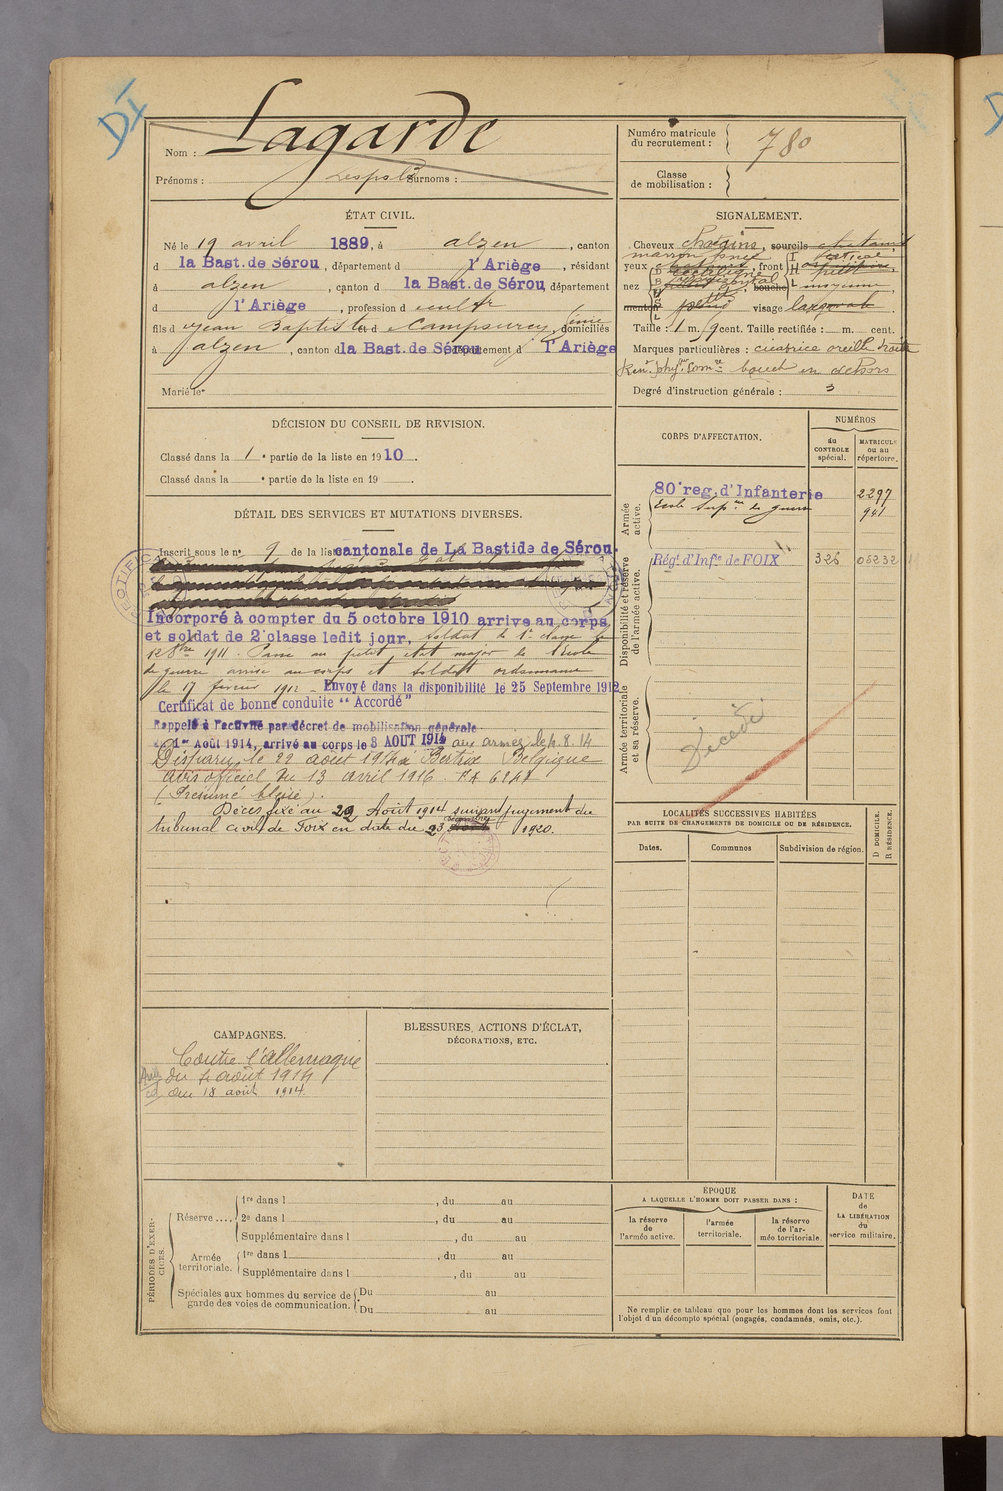 DI
Nom : Lagarde
Prénoms : Léopold Surnoms :
Numéro matricule du recrutement : 780
Classe de mobilisation :
ÉTAT CIVIL.
Né le 19 avril 1889, à alzen, canton
d la Bast. de Sérou, département d l'Ariège, résidant
à alzen, canton d la Bast. de Sérou, département
d l'Ariège, profession d cultr
fils d Jean Baptiste et d domiciliés
à alzen, canton d la Bast. de Sérou département d l'Ariège
Marié le
SIGNALEMENT.
Cheveux chatains, sourcils chatains
marron foncé
yeux front
nez bouche moyenne,
menton visage
Taille : 1 m. cent. Taille rectifiée : m. cent.
Marques particulières : cicatrice oreille droite
Ren. phys. Som. en dehors
Degré d'instruction générale : 3
DÉCISION DU CONSEIL DE REVISION.
Classé dans la 1e partie de la liste en 1910.
Classé dans la e partie de la liste en 19
CORPS D'AFFECTATION.
NUMÉROS
au CONTROLE spécial.
MATRICULE ou au répertoire.
Armée active.
80e reg. d'Infanterie 2297
Ecole Supre de guerre 941
Disponibilité et réserve de l'armée active.
Régt d'Infie de FOIX 326 05232
Armée territoriale et sa réserve.
Décédé
DÉTAIL DES SERVICES ET MUTATIONS DIVERSES.
Inscrit sous le no 9 de la liste cantonale de La Bastide de Sérou.
Incorporé à compter du 5 octobre 1910 arrivé au corps
et soldat de 2e classe ledit jour. Soldat de 1e classe le
12 8bre 1911. Passé au petit état major de l'école
de guerre arrivé au corps et soldat ordonnance
le 17 février 1912 - Envoyé dans la disponibilité le 25 Septembre 1912
Certificat de bonne conduite "Accordé"
Rappelé à l'activité par décret de mobilisation générale
du 1er Août 1914, arrivé au corps le 3 AOUT 1914 aux armées le 4.8.14
Disparu le 22 août 1914 à Bertrix Belgique
avis officiel du 13 avril 1916.
(Présumé blessé).
Décès fixé au 22 Août 1914 suivant jugement du
tribunal civil de Foix en date du 23 décembre 1920.
LOCALITÉS SUCCESSIVES HABITÉES
PAR SUITE DE CHANGEMENTS DE DOMICILE OU DE RÉSIDENCE.
Dates.
Communes
Subdivision de région.
D DOMICILE.
R RÉSIDENCE.
CAMPAGNES.
Contre l'allemagne
du 4 août 1914
au 18 août 1914
BLESSURES, ACTIONS D'ÉCLAT,
DÉCORATIONS, ETC.
PÉRIODES D'EXERCICES.
Réserve ....
1re dans l , du au
2e dans l , du au
Supplémentaire dans l , du au
Armée territoriale.
1re dans l , du au
Supplémentaire dans l , du au
Spéciales aux hommes du service de garde des voies de communication.
Du au
Du au
ÉPOQUE
A LAQUELLE L'HOMME DOIT PASSER DANS :
la réserve de l'armée active.
l'armée territoriale.
la réserve de l'armée territoriale.
DATE de LA LIBÉRATION du service militaire.
Ne remplir ce tableau que pour les hommes dont les services font
l'objet d'un décompte spécial (engagés, condamnés, omis, etc.).